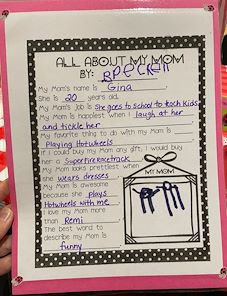 ALL ABOUT MY MOM
BY:
My Mom's name is Gina.
She is 20 years old.
My Mom's job is She goes to school to teach kids
My Mom is happiest when I laugh at her
and tickle her
My favorite thing to do with my Mom is
Playing Hotwheels
If I could buy my Mom any gift, I would buy
her a Superfireracetrack
My Mom looks prettiest when
she wears dresses.
My Mom is awesome
because she plays
Hotwheels with me
I love my Mom more
than Remi
The best word to
describe my Mom is
funny
MY MOM